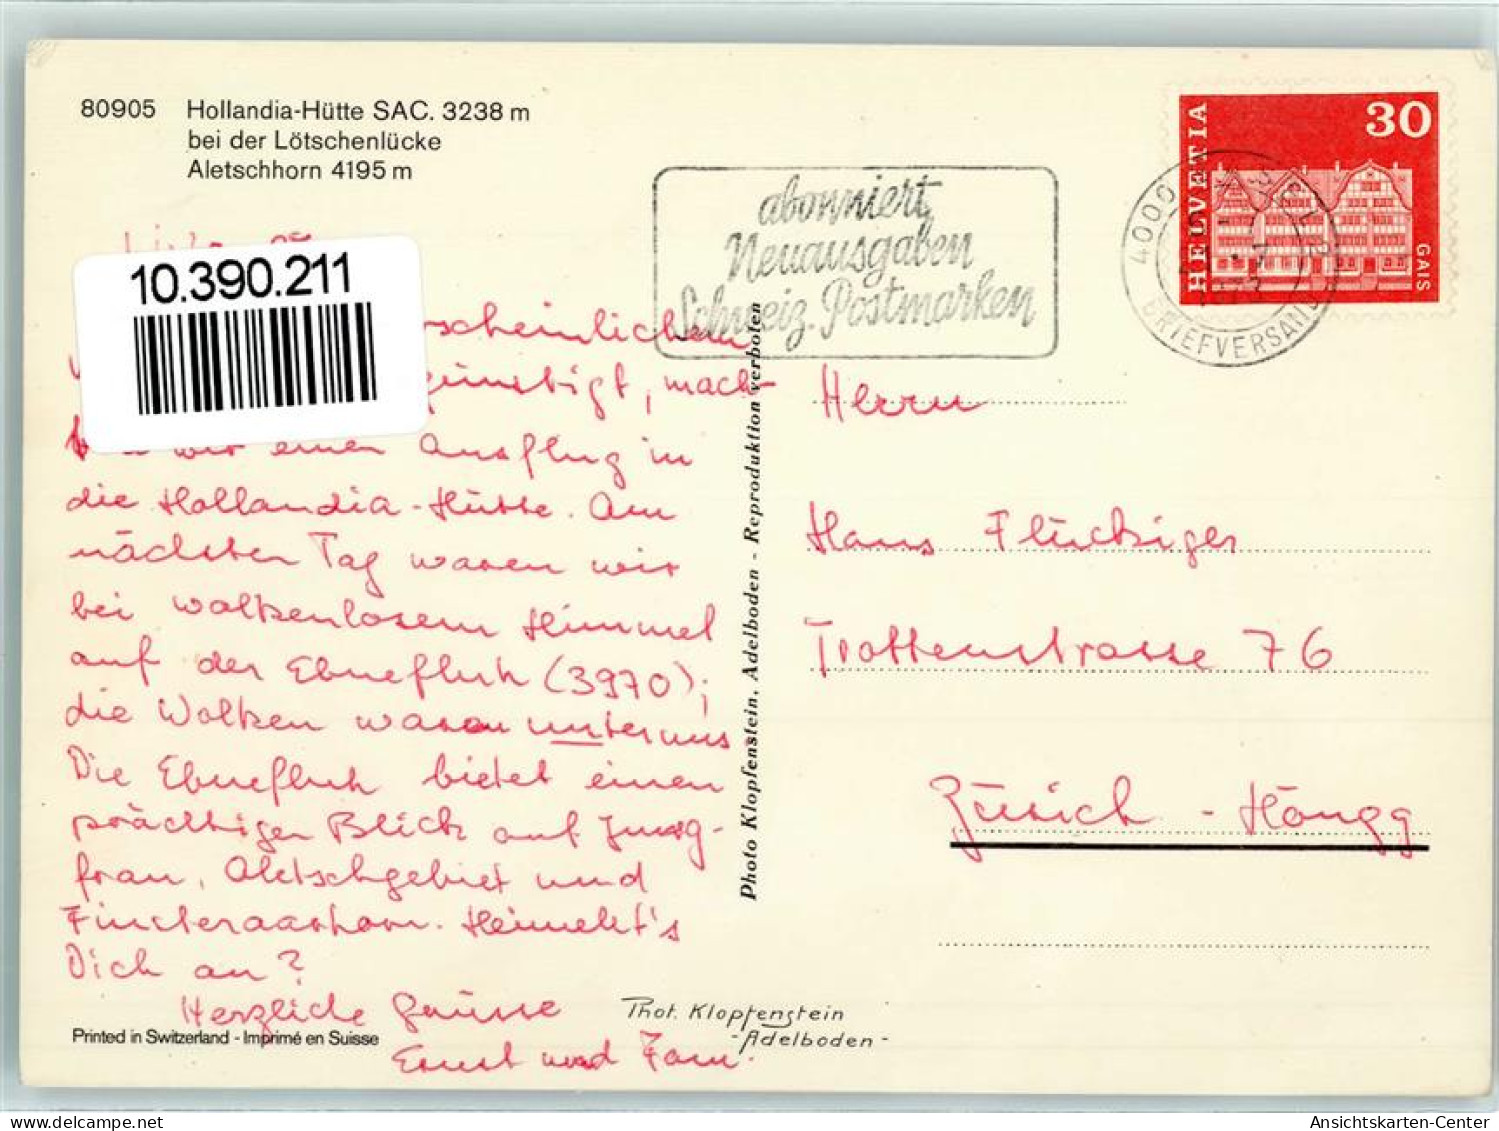 80905 Hollandia-Hütte SAC. 3238 m
bei der Lötschenlücke
Aletschhorn 4195 m
10.390.211
scheinlichem
günstigt, mach-
wir einen Ausflug in
die Hollandia-Hütte. Am
nächsten Tag waren wir
bei wolkenlosem Himmel
auf der Ebnefluh (3970);
die Wolken waren unter uns.
Die Ebnefluh bietet einen
prächtigen Blick auf Jung-
frau, Aletschgebiet und
Finsteraarhorn. Heimelt's
Dich an?
Herzliche Grüsse
Ernst und Fam.
Printed in Switzerland - Imprimé en Suisse
Phot. Klopfenstein
-Adelboden-
Photo Klopfenstein, Adelboden - Reproduktion verboten
abonniert
Neuausgaben
Schweiz. Postmarken
4000
BRIEFVERSAND
HELVETIA
30
GAIS
Herrn
Hans Flückiger
Trottenstrasse 76
Zürich - Höngg
Ansichtskarten-Center